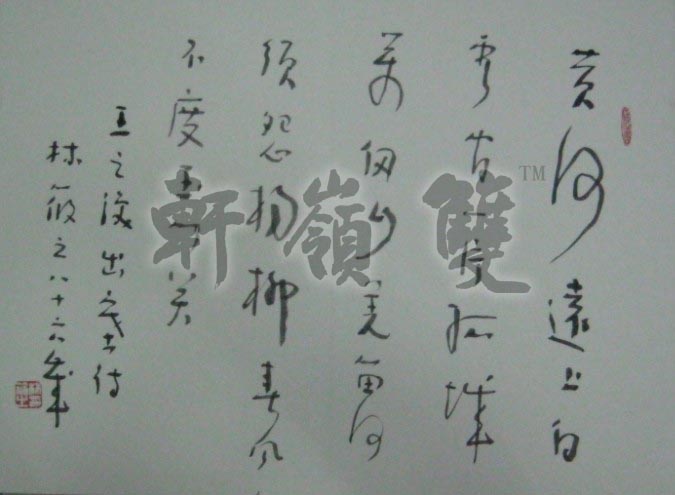 黄河遠上白
雲间一片孤城
萬仞山羌笛何
須怨楊柳春风
不度玉门关
王之涣出塞诗
林筱之八十六岁
雙嶺軒™